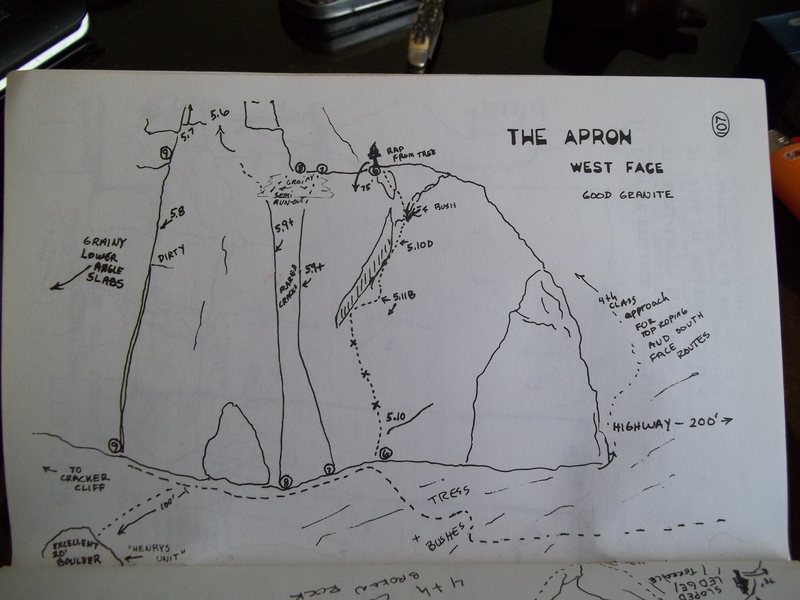 107
THE APRON
WEST FACE
GOOD GRANITE
5.6
5.7
9
8
7
6
RAP
FROM TREE
75'
GRAINY
SEMI
RUNOUT
BUSH
5.8
5.9+
5.10D
DIRTY
GRAINY
LOWER
ANGLE
SLABS
FLARED
CRACKS
5.9+
5.11B
4th
CLASS
approach
FOR
TOP ROPING
AND SOUTH
FACE
ROUTES
5.10
HIGHWAY - 200'
9
8
7
6
TO
CRACKER
CLIFF
100'
TRESS
+ BUSHES
EXCELLENT
20'
BOULDER
"HENRYS
UNIT"
4th
BROKEN ROCK
SLOPED
LEDGE/
TERRACE